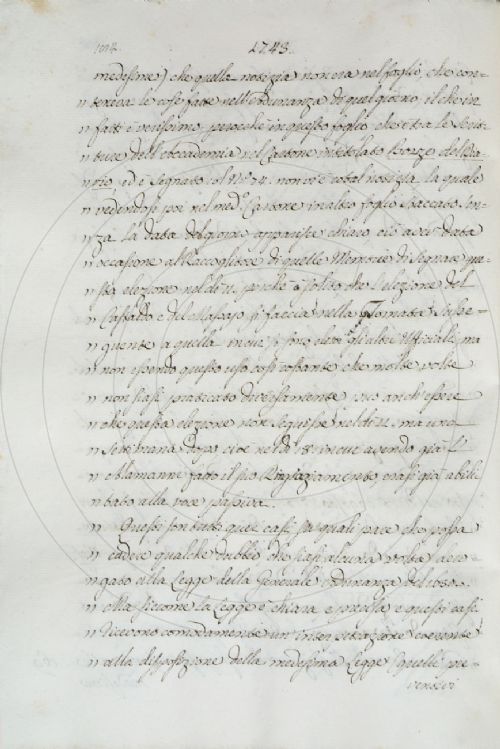 1014. 1743.
medesimo) che quella notizia non era nel foglio, che con=
" teneva le cose fatte nell'Adunanza di quel giorno, il che in
" fatti è verissimo, perocchè in questo foglio che è tra le Scrit
" ture dell'Accademia nel Cartone intitolato Bozze del Dia=
" rio, ed è segnato col N.º 74. non v'è cotal notizia. la quale
" vedendosi poi nel med.º Cartone in altro foglio staccato sen=
" za la data del giorno apparisce chiaro ciò aver data
" occasione al Raccoglitore di quelle Memorie di segnare que=
" sta elezione nel dì 11. perchè è solito che l'elezione del
" Castaldo e del Massajo si faccia nella Tornata susse=
" quente a quella in cui si sono eletti gli altri Uffiziali, ma
" non essendo questo uso così costante che molte volte
" non siasi praticato diversamente può anch'essere
" che questa elezione non seguisse nel dì 11. ma una
" Settimana dopo cioè nel dì 18. in cui avendo già l'
" Alamanni fatto il suo Ringraziamento erasi già abili
" tato alla voce passiva.
" Questi son tutti quei casi su quali pare che possa
" cadere qualche dubbio che siasi alcuna volta dero=
" gato alla Legge della Generale Adunanza
" Ma siccome la Legge è chiara e precisa e questi casi
" ricevono comodamente un'interpretazione coerente
" alla disposizione della medesima Legge (quelli pre=
venuti